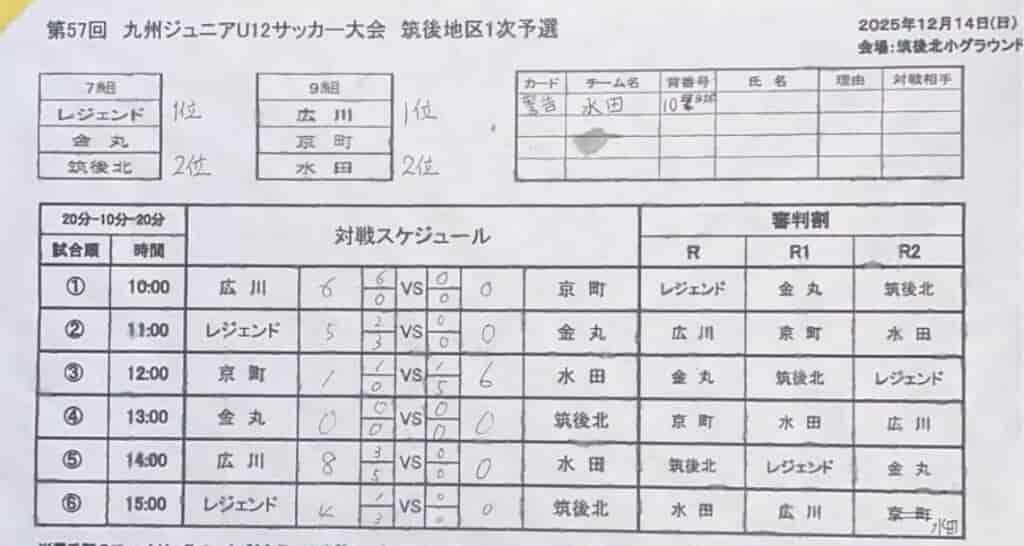 第57回 九州ジュニアU12サッカー大会 筑後地区1次予選
2025年12月14日(日)
会場:筑後北小グラウンド
7組
レジェンド 1位
金 丸
筑後北 2位
9組
広 川 1位
京 町
水 田 2位
カード チーム名 背番号 氏 名 理由 対戦相手
警告 水田 10
20分-10分-20分 対戦スケジュール 審判割
試合順 時間 R R1 R2
① 10:00 広 川 6 6 0 VS 0 0 0 京 町 レジェンド 金 丸 筑後北
② 11:00 レジェンド 5 2 3 VS 0 0 0 金 丸 広 川 京 町 水 田
③ 12:00 京 町 1 1 0 VS 1 5 6 水 田 金 丸 筑後北 レジェンド
④ 13:00 金 丸 0 0 0 VS 0 0 0 筑後北 京 町 水 田 広 川
⑤ 14:00 広 川 8 3 5 VS 0 0 0 水 田 筑後北 レジェンド 金 丸
⑥ 15:00 レジェンド 4 1 3 VS 0 0 0 筑後北 水 田 広 川 京 町 水田